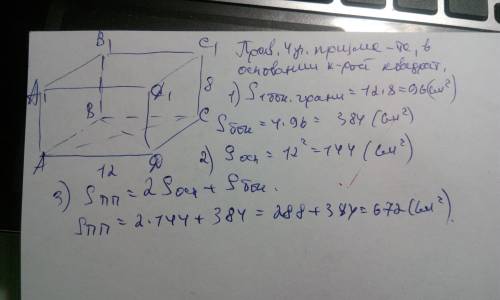 B₁
C₁
A₁
D₁
8
B
C
A
D
12
Прав. 4уг. призма – та, в
основании к-рой квадрат.
1) S1бок. грани = 12·8=96(см²)
Sбок = 4·96 = 384 (см²)
2) Sосн = 12² = 144 (см²)
3) Sпп = 2Sосн + Sбок.
Sпп = 2·144 + 384 = 288 + 384 = 672 (см²)